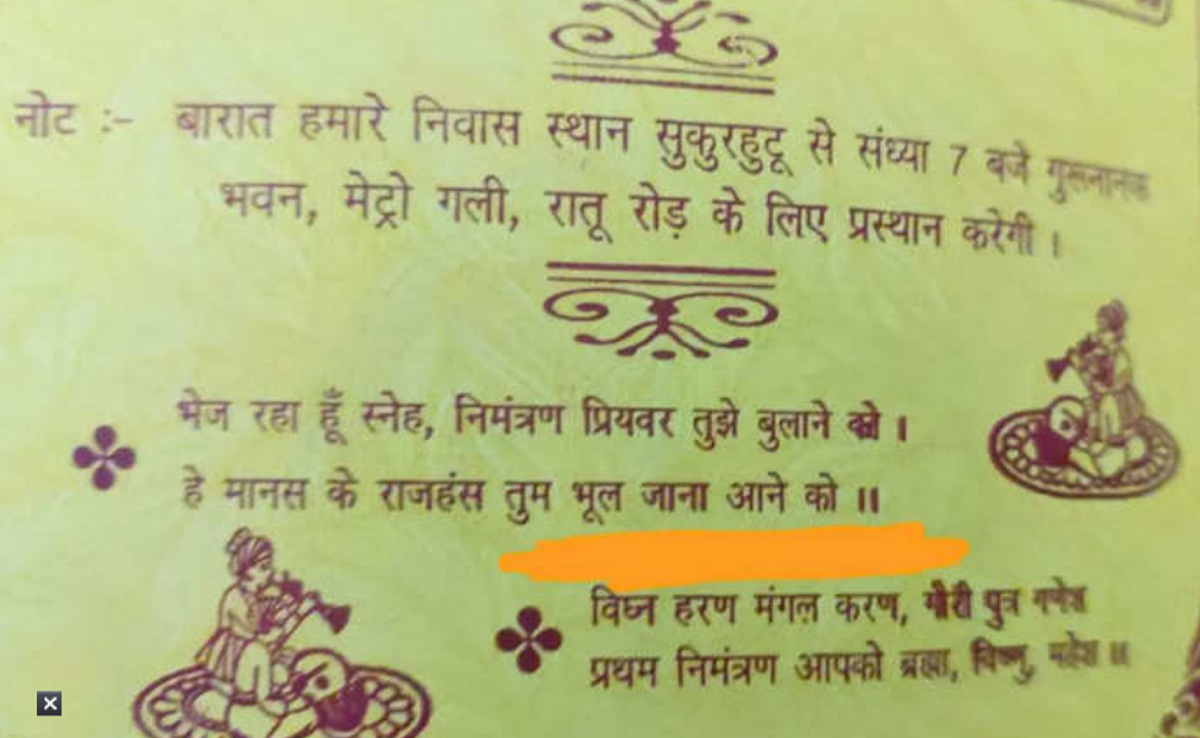 नोट :- बारात हमारे निवास स्थान सुकुरहुटू से संध्या 7 बजे गुरूनानक
भवन, मेट्रो गली, रातू रोड़ के लिए प्रस्थान करेगी ।
भेज रहा हूँ स्नेह, निमंत्रण प्रियवर तुझे बुलाने को ।
हे मानस के राजहंस तुम भूल जाना आने को ॥
विघ्न हरण मंगल करण, गौरी पुत्र गणेश
प्रथम निमंत्रण आपको ब्रह्मा, विष्णु, महेश ॥